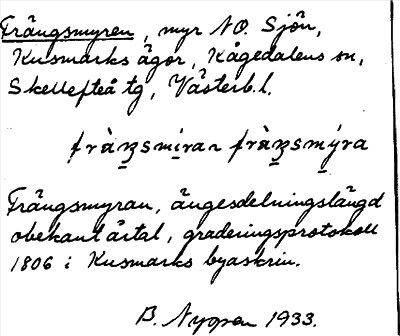 Frängsmyren, myr NO. Sjön,
Kusmarks ägor, Kågedalens sn,
Skellefteå tg, Västerb.l.
Frängsmyran, ängesdelningslängd
obekant årtal, graderingsprotokoll
1806 i Kusmarks byaskrin.
B. Nygren 1933.